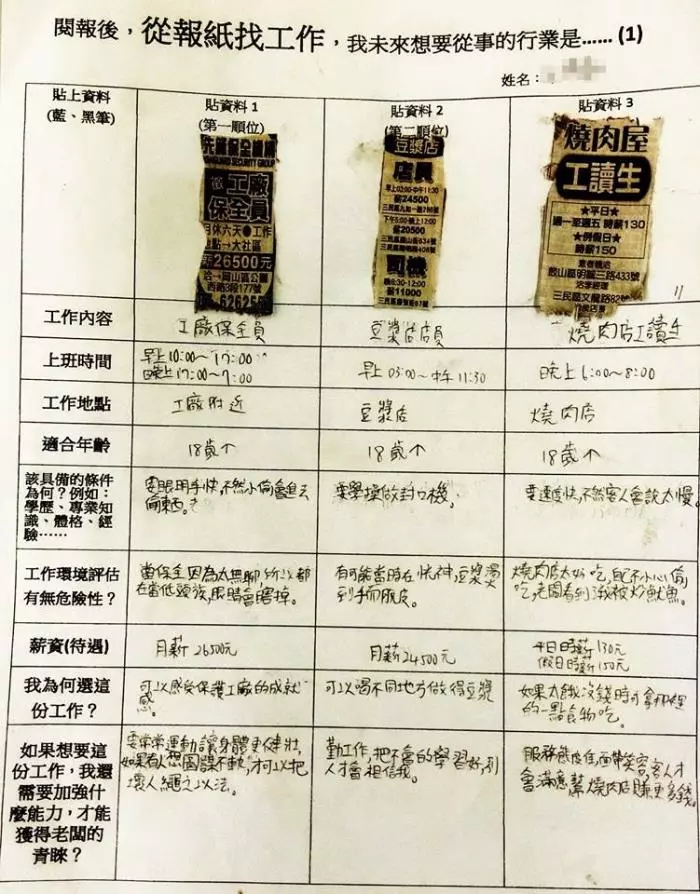 閱報後，從報紙找工作，我未來想要從事的行業是……(1)
姓名：
貼上資料
(藍、黑筆)
貼資料 1
(第一順位)
貼資料 2
(第二順位)
貼資料 3
保全
SECURITY GROUP
徵工廠
保全員
月休六天●工作
點→大社區
薪26500元
洽→岡山區公園
西路3段177號
豆漿店
店員
早上03:00-中午11:30
薪24500
薪20500
司機
薪11000
燒肉屋
工讀生
★平日★
週一至週五 時薪130
★例假日★
時薪150
意者親洽
鼓山區明誠三路433號
三民區文龍路82號
工作內容
工廠保全員
豆漿店店員
燒肉店工讀生
上班時間
早上10:00～17:00
晚上17:00～7:00
早上 03:00～中午 11:30
晚上6:00～8:00
工作地點
工廠附近
豆漿店
燒肉店
適合年齡
18歲↑
18歲↑
18歲↑
該具備的條件
為何？例如：
學歷、專業知
識、體格、經
驗……
要眼明手快，不然小偷會進去
偷東西。
要學操做封口機。
要速度快，不然客人會說太慢。
工作環境評估
有無危險性？
當保全因為太無聊，所以都
在當低頭族，眼睛會瞎掉。
有可能當時在恍神，豆漿燙
到手而脫皮。
燒肉店太好吃，自己不小心偷
吃，老闆看到後我被炒魷魚。
薪資(待遇)
月薪26500元
月薪24500元
平日時薪130元
假日時薪150元
我為何選這
份工作？
可以感受保護工廠的成就
感。
可以喝不同地方做得豆漿
如果太餓沒錢時可拿那裡
的一點食物吃。
如果想要這
份工作，我還
需要加強什
麼能力，才能
獲得老闆的
青睞？
要常常運動讓身體更健壯，
如果有人想圖謀不軌，才可以把
壞人繩之以法。
勤工作，把不會的學習好，別
人才會相信我。
服務態度佳，面帶笑容，客人才
會滿意幫燒肉店賺更多錢。